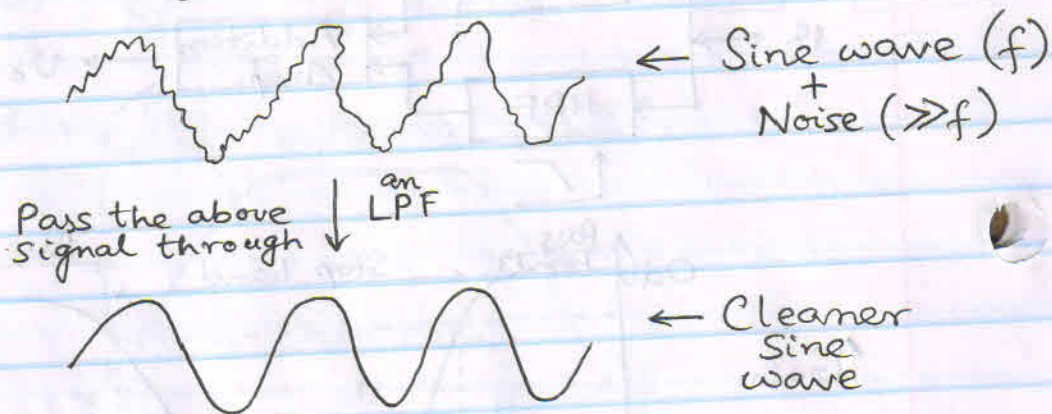 ← Sine wave (f)
+
Noise (≫f)
Pass the above
signal through
↓ an
LPF
← Cleaner
sine
wave